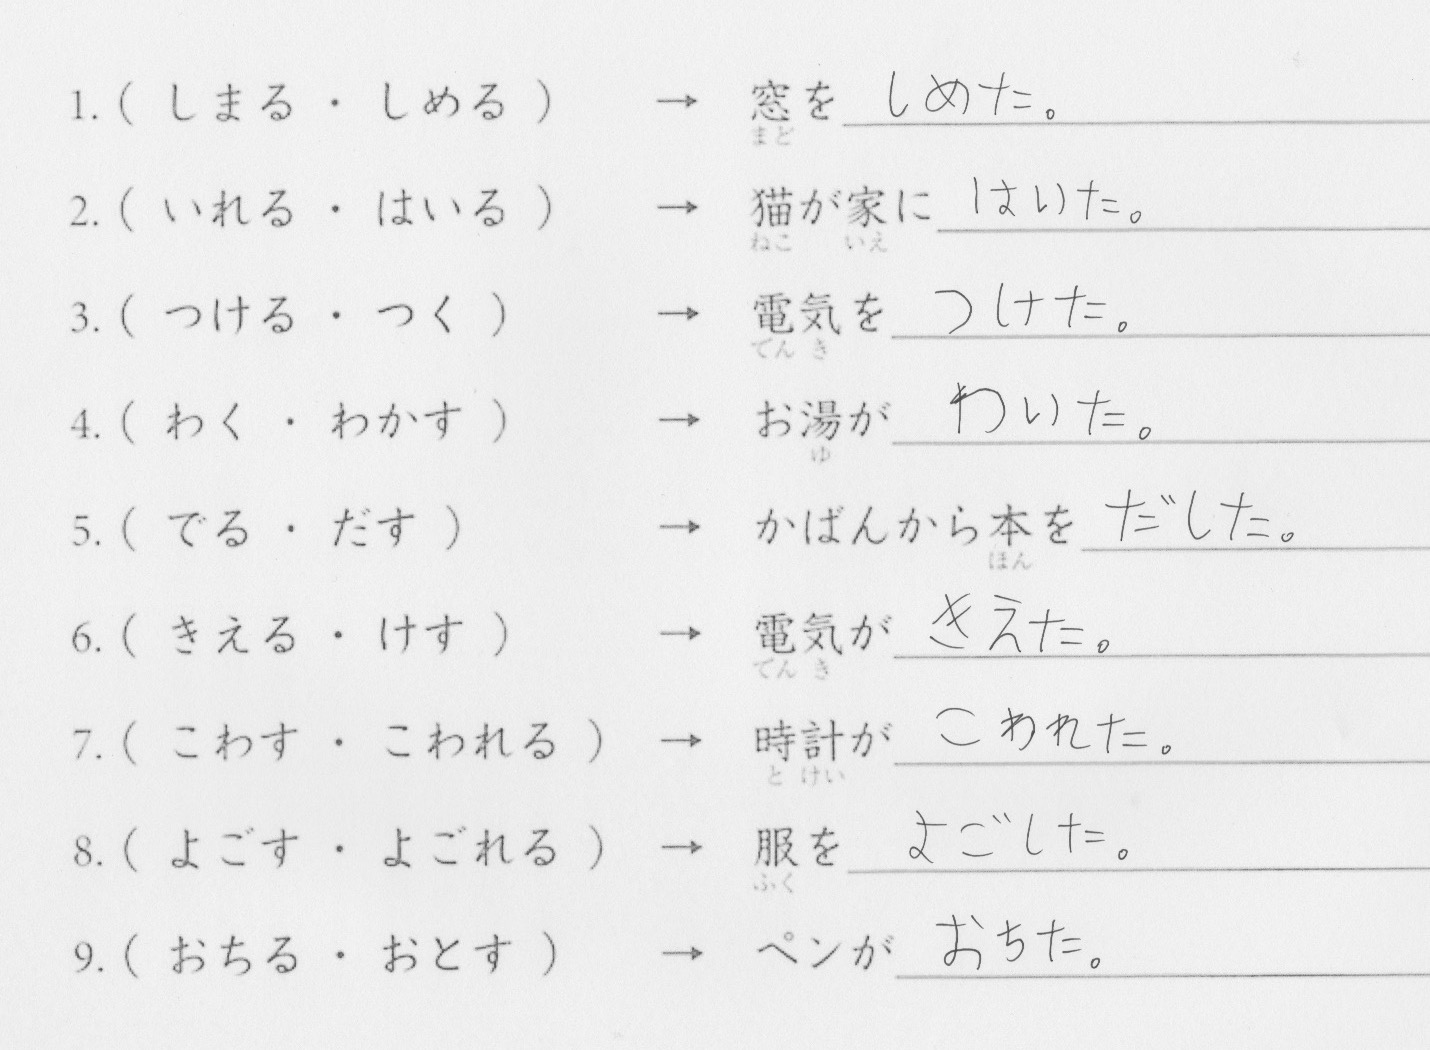 1.( しまる ・ しめる ) → 窓を しめた。
まど
2.( いれる ・ はいる ) → 猫が家に はいた。
ねこ いえ
3.( つける ・ つく ) → 電気を つけた。
でんき
4.( わく ・ わかす ) → お湯が わいた。
ゆ
5.( でる ・ だす ) → かばんから本を だした。
ほん
6.( きえる ・ けす ) → 電気が きえた。
でんき
7.( こわす ・ こわれる ) → 時計が こわれた。
とけい
8.( よごす ・ よごれる ) → 服を よごした。
ふく
9.( おちる ・ おとす ) → ペンが おちた。